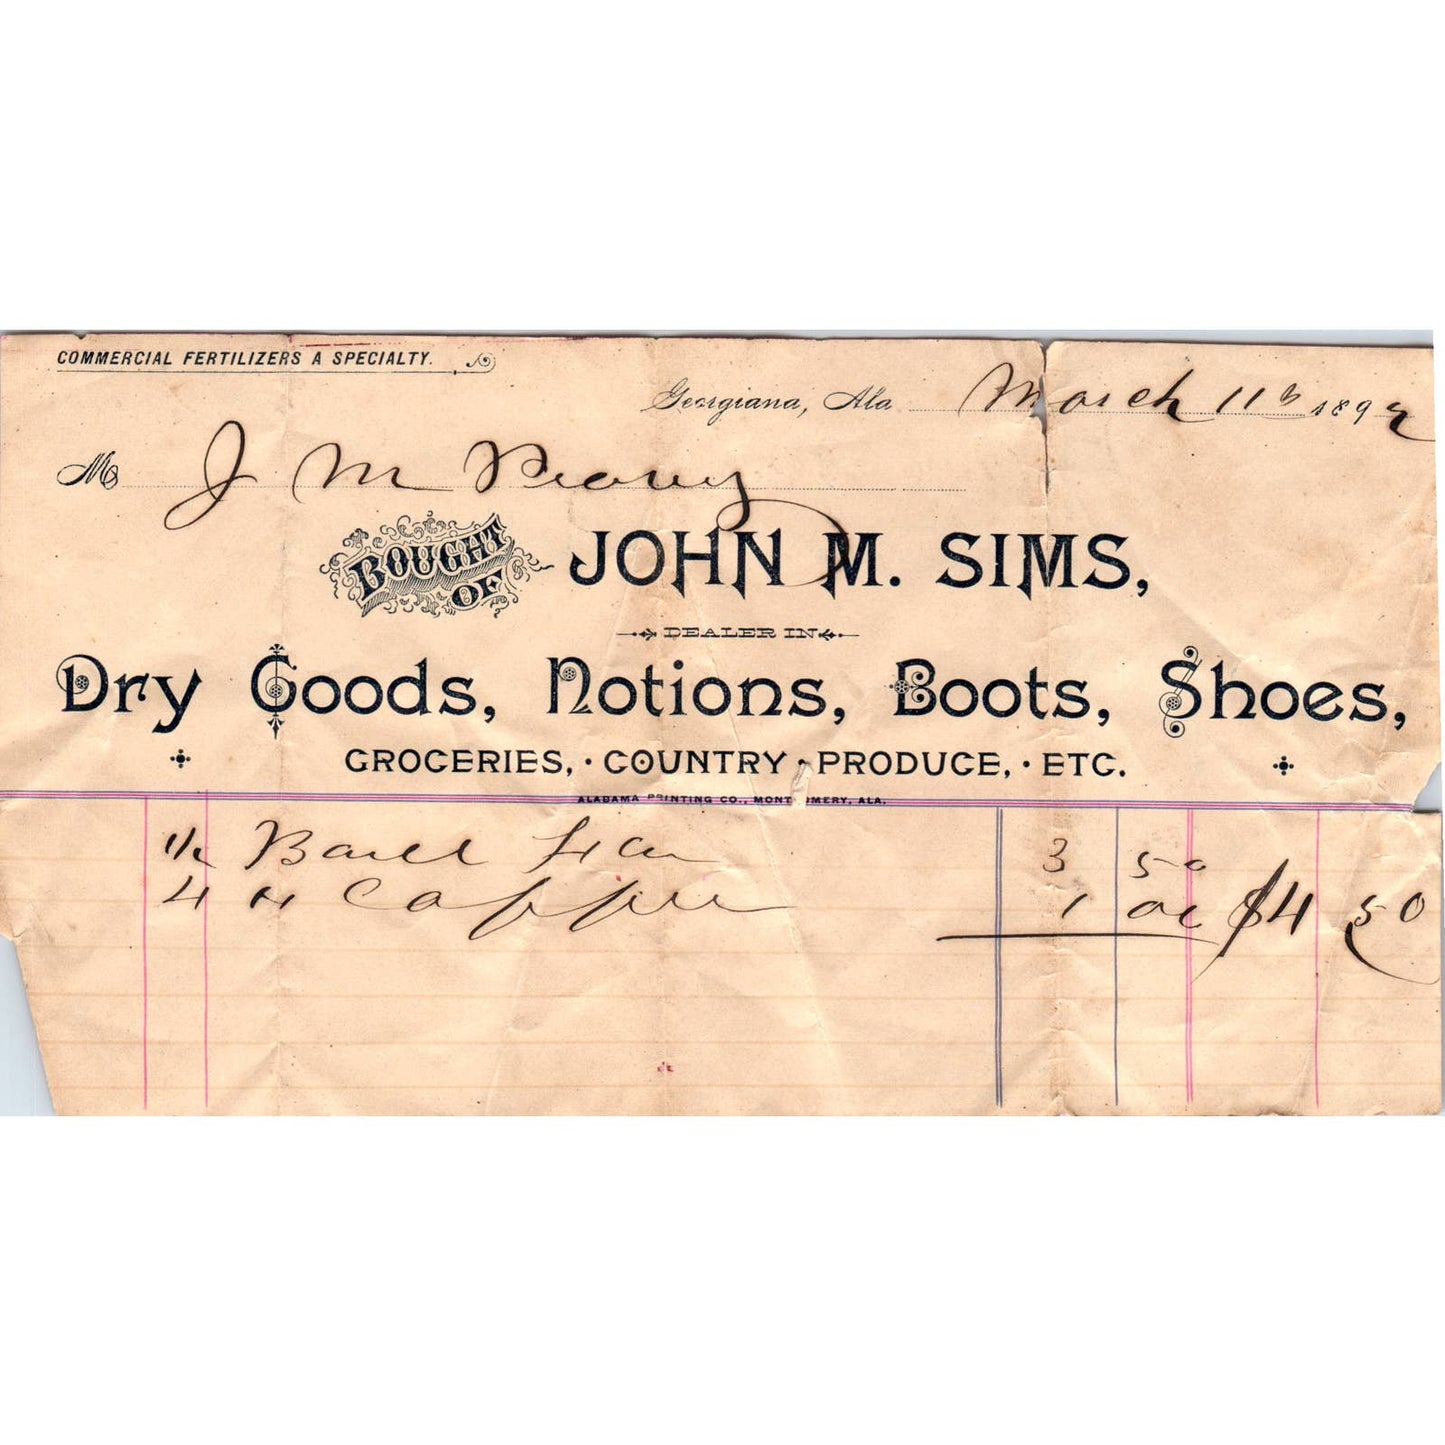 COMMERCIAL FERTILIZERS A SPECIALTY.
Georgiana, Ala March 11th 1892
M J M
BOUGHT OF JOHN M. SIMS,
DEALER IN
Dry Goods, Notions, Boots, Shoes,
GROCERIES, · COUNTRY · PRODUCE, · ETC.
ALABAMA PRINTING CO., MONTGOMERY, ALA.
1/2 3 50
4 " 1 00 $4 50